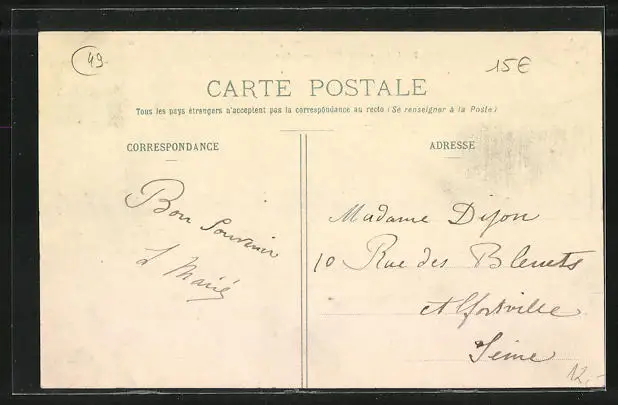 49
15€
CARTE POSTALE
Tous les pays étrangers n'acceptent pas la correspondance au recto (Se renseigner à la Poste)
CORRESPONDANCE
Bon Souvenir
L Marié
ADRESSE
Madame Dijon
10 Rue des Bleuets
Alfortville
Seine
12,-